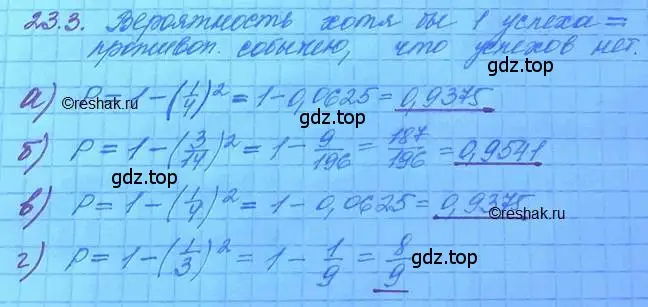 23.3. Вероятность хотя бы 1 успеха =
противоп. событию, что успехов нет.
gdz.top
а) P = 1 - (1/4)² = 1 - 0,0625 = 0,9375
©reshak.ru
gdz.top
б) P = 1 - (3/14)² = 1 - 9/196 = 187/196 = 0,9541
gdz.top
в) P = 1 - (1/4)² = 1 - 0,0625 = 0,9375
©reshak.ru
gdz.top
г) P = 1 - (1/3)² = 1 - 1/9 = 8/9
gdz.top